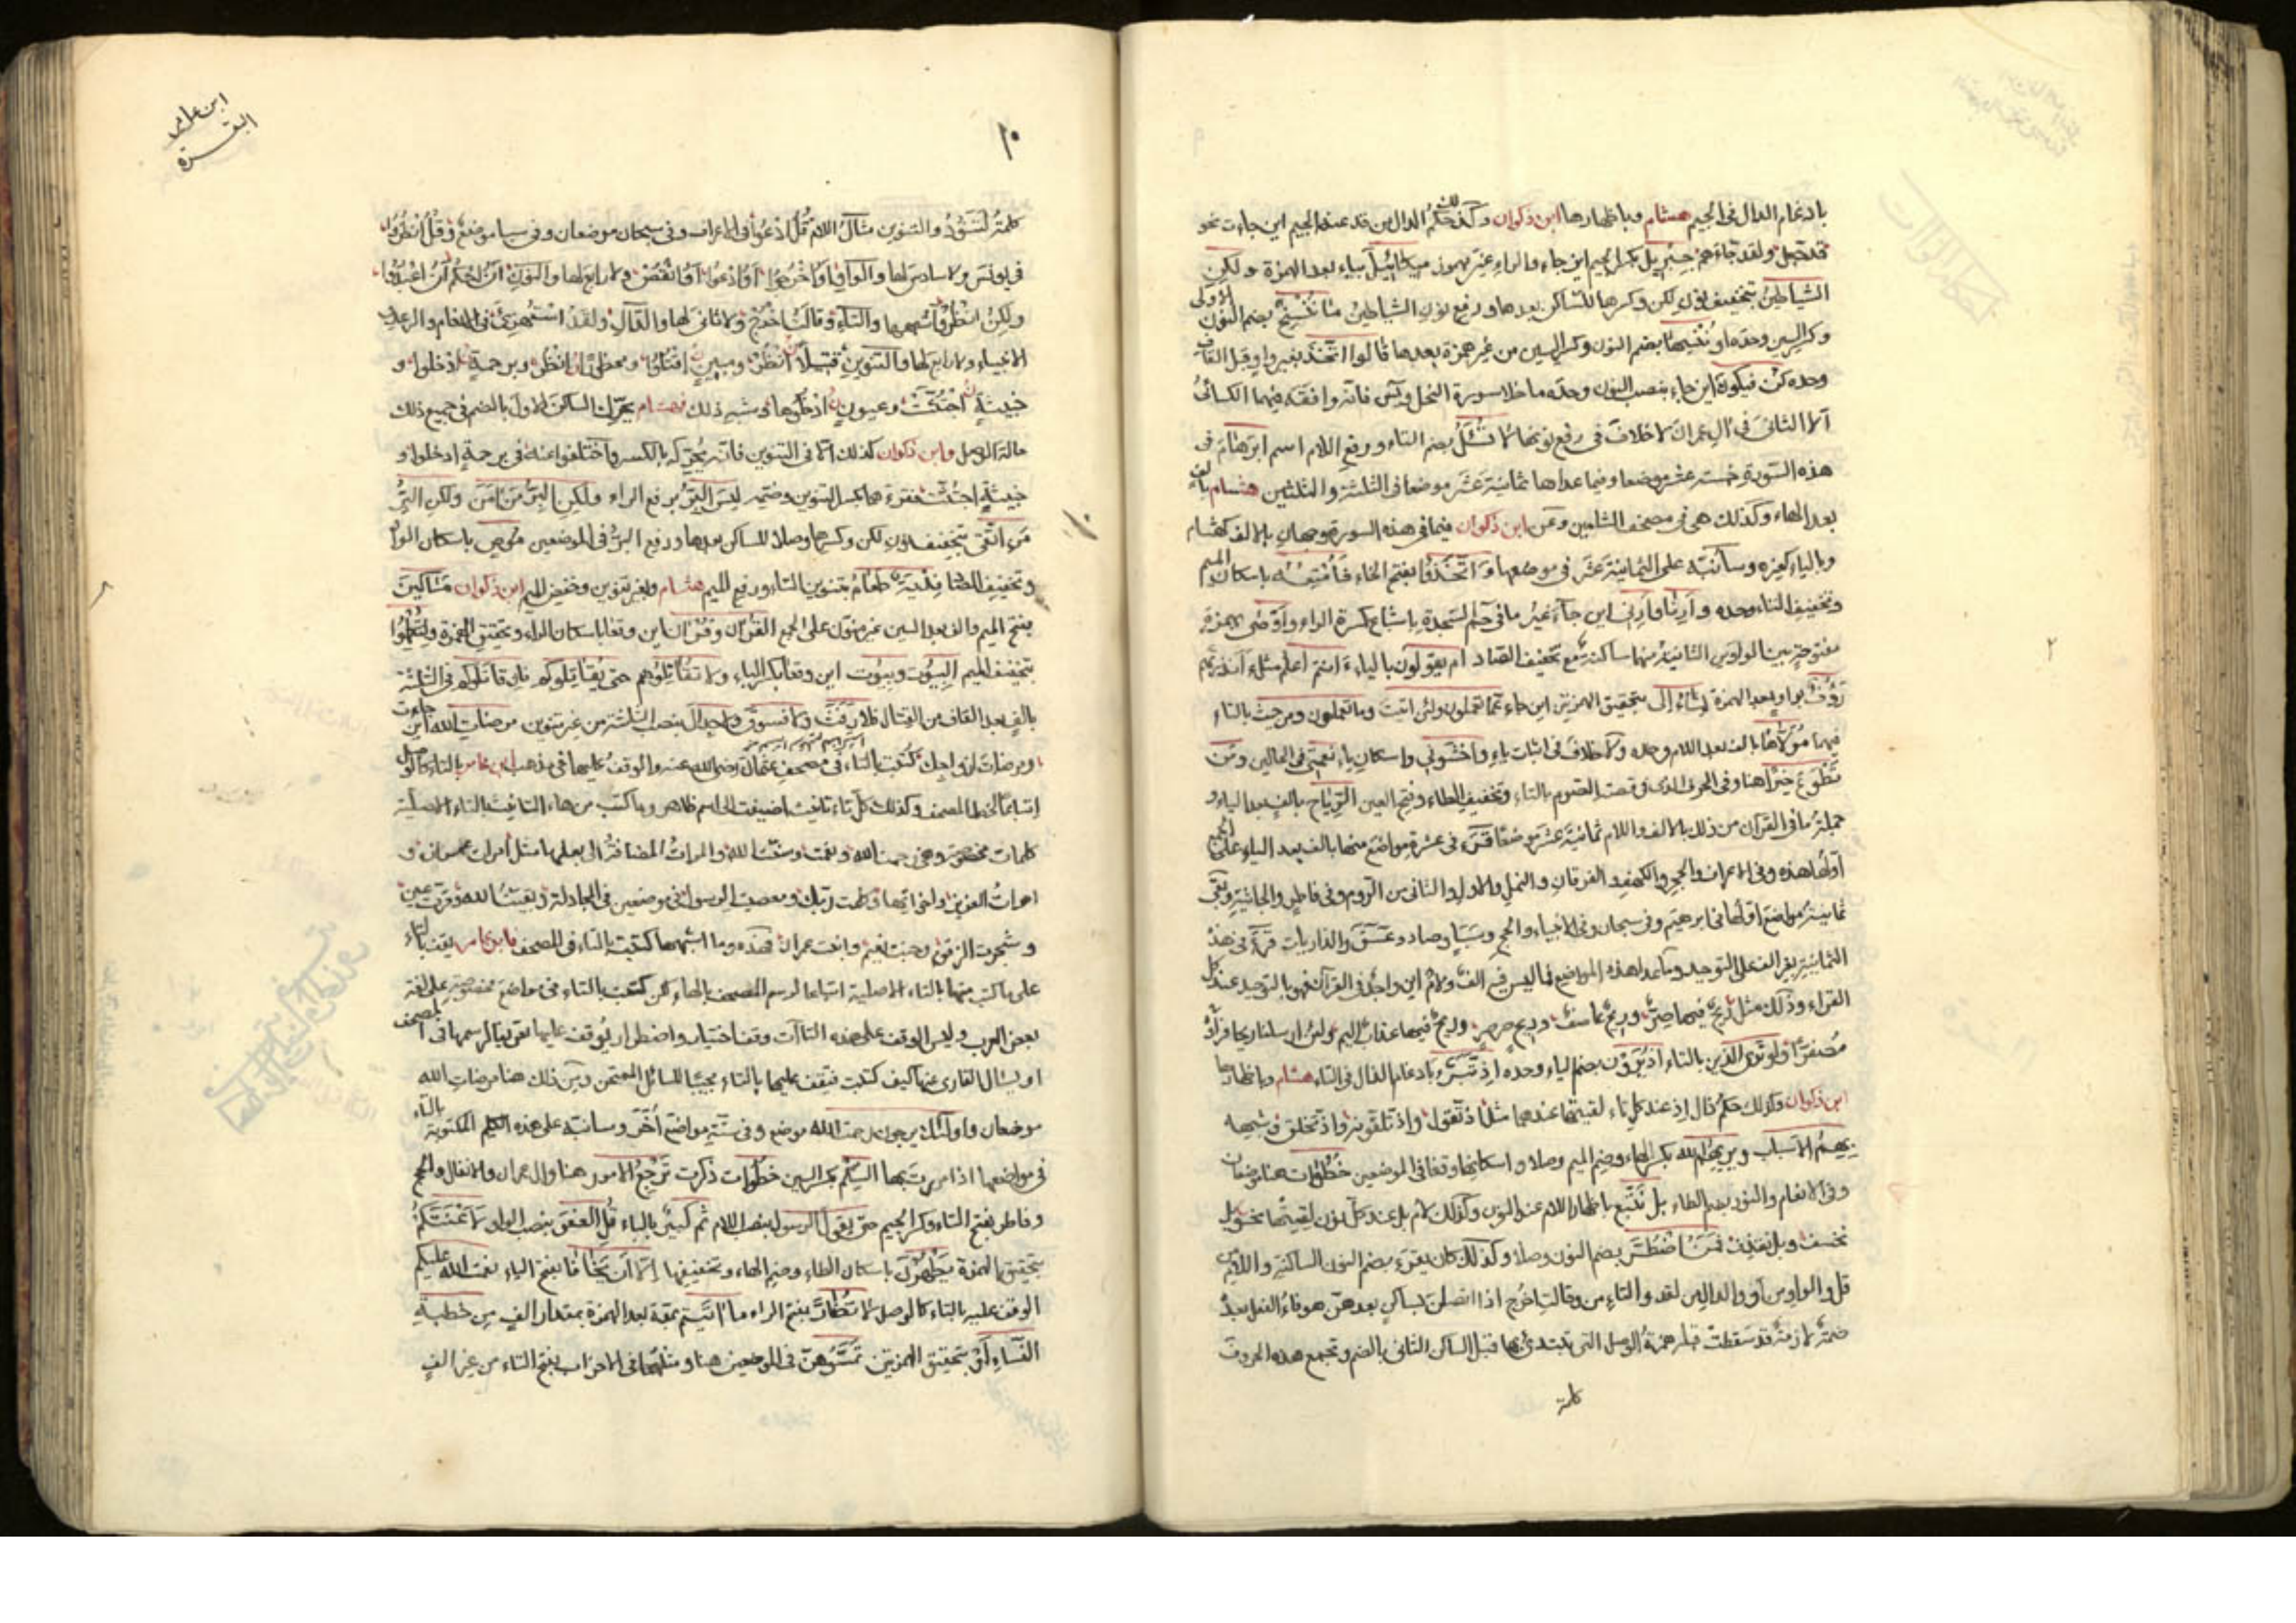 بادغام الدال فى الجيم هشام وباظهارها ابن ذكوان وكذلك حكم الدال من قد عند الجيم اين جاءت نحو
قد جعل ولقد جاءهم جبريل بكسر الجيم اين جاء والراء غير مهموز ميكائيل بياء بعد الهمزة ولكن
الشياطين بتخفيف نون لكن وكسرها للساكن بعدها ورفع نون الشياطين ما ننسخ بضم النون الاولى
وكسر السين وحده او ننسها بضم النون وكسر السين من غير همزة بعدها قالوا اتخذ بغير واو قبل القاف
وحده كن فيكون اين جاء بنصب النون وحده ما خلا سورة النحل ويس فانه وافقه فيهما الكسائى
الا الثانى فى ال عمران لا خلاف فى رفع نونها لا تسئل بضم التاء ورفع اللام اسم ابرهام فى
هذه السورة خمسة عشر موضعا وفيما عداها ثمانية عشر موضعا فى الثلثة والثلثين هشام بالف
بعد الهاء وكذلك هى فى مصحف الشاميين وعن ابن ذكوان فيما فى هذه السورة وجهان بالالف كهشام
وبالياء كغيره وسأنبه على الثمانية عشر فى موضعها واتخذوا بفتح الخاء فأمتعه باسكان الميم
وتخفيف التاء وحده وأرنا وأرنى اين جاء غير ما فى حم السجدة باشباع كسرة الراء وأوصى بهمزة
مفتوحة بين الواوين الثانية منهما ساكنة مع تخفيف الصاد ام يقولون بالياء ءانتم اعلم مثل ءانذرتهم
رؤف بواو بعد الهمزة يشاء الى بتحقيق الهمزتين اين جاء عما تعملون ولئن اتيت وما تعملون ومن حيث بالتاء
فيهما مولاها بالف بعد اللام وحده ولا خلاف فى اثبات ياء واخشونى واسكان ياء نعمتى فى الحالين ومن
تطوع خيرا هنا وفى الحرف الذى فى قصة الصوم بالتاء وتخفيف الطاء وفتح العين الرياح بالف بعد الياء و
جملة ما فى القرآن من ذلك بالالف واللام ثمانية عشر موضعا قرء فى عشرة مواضع منها بالف بعد الياء على الجمع
اولها هذه وفى الاعراف والحجر والكهف والفرقان والنمل والاول والثانى من الروم وفى فاطر والجاثية وبقى
ثمانية مواضع اولها فى ابرهيم وفى سبحان وفى الانبياء والحج وسبا وصاد وعسق والذاريات قرأ فى هذه
الثمانية بغير الف على التوحيد وما عدا هذه المواضع مما ليس فيه الف ولام اين واجد فى القرآن فهو بالتوحيد عند كل
القراء وذلك مثل ريح فيها صر وريح عاصف وريح صرصر وريح فيها عذاب اليم ولئن ارسلنا ريحا فرأوه
مصفرا ولو ترى الذين بالتاء اذ يرون بضم الياء وحده اذ تبرء بادغام الذال فى التاء هشام وباظهارها
ابن ذكوان وكذلك حكم ذال اذ عند كل تاء لقيتها عندهما مثل اذ تقول واذ تلقونه واذ تخلق وشبهه
بهم الاسباب ويريهم الله بكسر الهاء وضم الميم وصلا واسكانها وقفا فى الموضعين خطوات هنا موضعان
وفى الانعام والنور بضم الطاء بل نتبع باظهار اللام عند النون وكذلك لام بل عند كل نون لقيتها نحو بل
نحسف وبل نقذف فمن اضطر بضم النون وصلا وكذلك كان يقرء بضم النون الساكنة واللام من
قل والواو من او والدال من لقد والتاء من وقالت اخرج اذا اتصلن بساكن بعدهن هو فاء الفعل بعده
ضمة لازمة قد سقطت قبله همزة الوصل التى تبتدئ بها قبل الساكن الثانى بالضم وتجمع هذه الحروف
كلمة
١٠
ابن عامر
البقرة
كلمة لتنود والتنوين مثال اللام قل ادعوا فى الاعراف وفى سبحان موضعان وفى سبا موضع وقل انظروا
فى يونس ولا سادس لها والواو او اخرجوا او ادعوا او انقص ولا رابع لها والنون ان احكم ان اعبدوا
ولكن انظر وأشبهها والتاء وقالت اخرج ولا ثانى لها والدال ولقد استهزئ فى الانعام والرعد و
الانبياء ولا رابع لها والتنوين فتيلا انظر ومبين اقتلوا ومحظورا انظر وبرحمة ادخلوا و
خبيثة اجتثت وعيون ادخلوها وشبه ذلك هشام يحرك الساكن الاول بالضم فى جميع ذلك
حالة الوصل وابن ذكوان كذلك الا فى التنوين فانه يحركه بالكسر واختلفوا عنه فى برحمة ادخلوا و
خبيثة اجتثت فقرءهما بكسر التنوين وضمه ليس البر برفع الراء ولكن البر من امن ولكن البر
من اتقى بتخفيف نون لكن وكسرها وصلا للساكن بعدها ورفع البر فى الموضعين موص باسكان الواو
وتخفيف الصاد فدية طعام بتنوين التاء ورفع الميم هشام وبغير تنوين وخفض الميم ابن ذكوان مساكين
بفتح الميم والف بعد السين غير منون على الجمع القرآن وقرآن اين وقعا باسكان الراء وتحقيق الهمزة ولتكملوا
بتخفيف الميم البيوت وبيوت اين وقعا بكسر الباء ولا تقاتلوهم حتى يقاتلوكم فان قاتلوكم فى الثلثة
بالف بعد القاف من القتال فلا رفث ولا فسوق ولا جدال بنصب الثلثة من غير تنوين مرضات الله اين جاءت
ومرضات ازواجك كتبت بالتاء فى مصحف عثمان رضى الله عنه والوقف عليها فى مذهب ابن عامر بالتاء كالوصل
اتباعا لخط المصحف وكذلك كل تاء تانيث اضيفت الى اسم ظاهر وما كتب من هاء التانيث بالتاء الاصلية
كلمات مخصوصة وهى رحمت الله ونعمت وسنت الله وامرات المضافة الى بعلها مثل امرات عمران و
امرات العزيز وكلمت ربك ومعصيت الرسول فى موضعين فى المجادلة وبقيت الله وقرت عين
و شجرت الزقوم وجنت نعيم وابنت عمران فهذه وما اشبهها كتبت بالتاء فى المصحف فابن عامر يقف بالتاء
على ما كتب منها بالتاء الاصلية اتباعا لرسم المصحف فى مواضع مخصوصة على لغة
بعض العرب وليس الوقف على هذه التاآت وقف اختيار واضطرار يوقف عليها فى المصحف
او يسال القارى عنها كيف كتبت فيقف عليها بالتاء مجيبا للسائل الممتحن وبين ذلك هنا مرضات الله
موضعان واولئك يرجون رحمت الله موضع وفى ستة مواضع أخر وسانبه على هذه الكلم المكتوبة بالتاء
فى مواضعها اذا مررت بها السلم بكسر السين خطوات ذكرت ترجع الامور هنا وال عمران والانفال والحج
وفاطر بفتح التاء وكسر الجيم حتى يقول الرسول بنصب اللام اثم كبير بالباء قل العفو بنصب الواو لأعنتكم
بتحقيق الهمزة يطهرن باسكان الطاء وضم الهاء وتخفيفها الا أن يخافا بفتح الياء نعمت الله عليكم
الوقف عليه بالتاء كالوصل لا تضار بفتح الراء ما اتيتم بمدة بعد الهمزة بمقدار الف من خطبة
النساء أو بتحقيق الهمزتين تمسوهن فى الموضعين هنا ومثلها فى الاحزاب بفتح التاء من غير الف